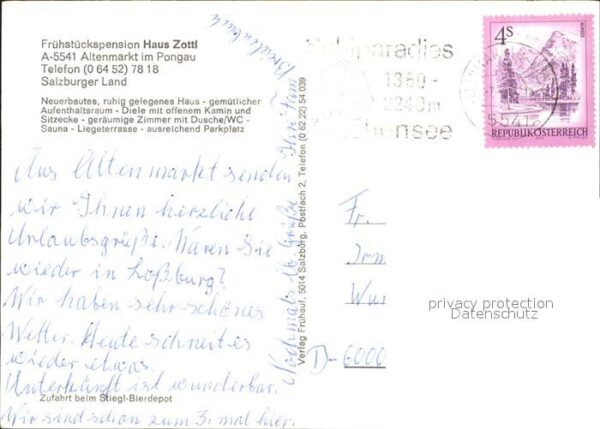 Frühstückspension Haus Zottl
A-5541 Altenmarkt im Pongau
Telefon (0 64 52) 78 18
Salzburger Land
Neuerbautes, ruhig gelegenes Haus - gemütlicher
Aufenthaltsraum - Diele mit offenem Kamin und
Sitzecke - geräumige Zimmer mit Dusche/WC -
Sauna - Liegeterrasse - ausreichend Parkplatz
Aus Altenmarkt senden
wir Ihnen herzliche
Urlaubsgrüße. Waren Sie
wieder in Loßburg?
Wir haben sehr schönes
Wetter. Heute schneit es
wieder etwas.
Unterkunft ist wunderbar.
Zufahrt beim Stiegl-Bierdepot
Wir sind schon zum 3. mal hier.
Nochmals lb. Grüße Ihr Fam.
Verlag Frühauf, 5014 Salzburg, Postfach 2, Telefon (0 62 22) 54 0 39
Schiparadies
1360-
2240m
5541
4S
REPUBLIK ÖSTERREICH
Fr.
Irm
Wur
D-6000
privacy protection
Datenschutz